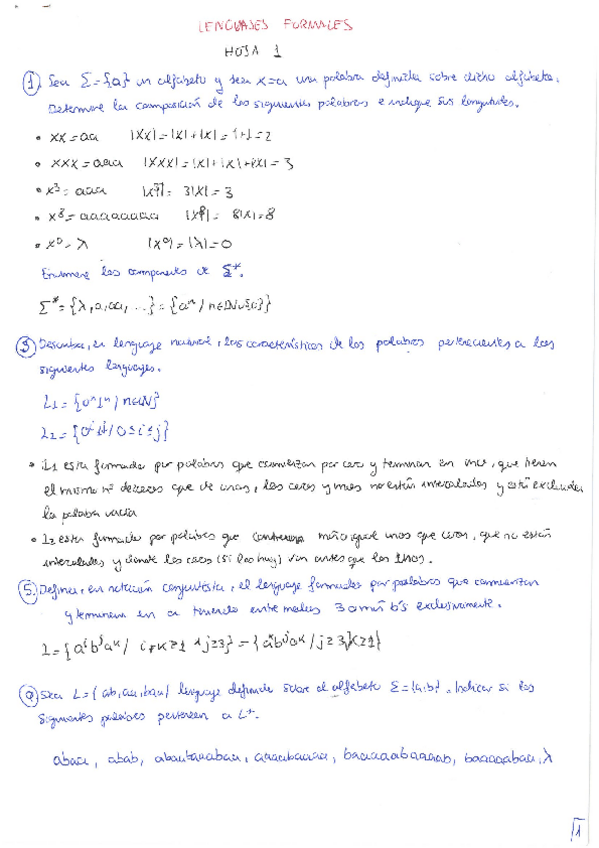 LENGUAJES FORMALES
HOJA 1
① Sea Σ={a} un alfabeto y sea x=a una palabra definida sobre dicho alfabeto.
Determine la composición de las siguientes palabras e indique sus longitudes.
• xx=aa |xx|=|x|+|x|=1+1=2
• xxx=aaa |xxx|=|x|+|x|+|x|=3
• x³=aaa |x³|= 3|x|=3
• x⁸=aaaaaaaa |x⁸|= 8|x|=8
• x⁰=λ |x⁰|=|λ|=0
Enumere los componentes de Σ*.
Σ*={λ,a,aa, ...}={aⁿ/n∈ℕ∪{0}}
③ Describa, en lenguaje natural, las características de las palabras pertenecientes a los
siguientes lenguajes.
L1={0ⁿ1ⁿ/n∈ℕ}
L2={0ⁱ1ʲ/0≤i≤j}
• L1 esta formado por palabras que comienzan por cero y terminan en uno, que tienen
el mismo nº de ceros que de unos, los ceros y unos no están intercalados y está excluida
la palabra vacía
• L2 esta formado por palabras que más o igual unos que ceros, que no están
intercalados y donde los ceros (si los hay) van antes que los unos.
⑤ Defina, en notación conjuntista, el lenguaje formado por palabras que comienzan
y terminan en a teniendo entre medias 3 o más b's exclusivamente.
L={aⁱbʲaᵏ/ ∧ j≥3}=
Sea L={ab,aa,baa} lenguaje definido sobre el alfabeto Σ={a,b}. Indicar si las
siguientes palabras pertenecen a
abaa, abab, abaabaaabaa, aaaabaaaa, baaaaabaaaab, baaaaabaa, λ
1